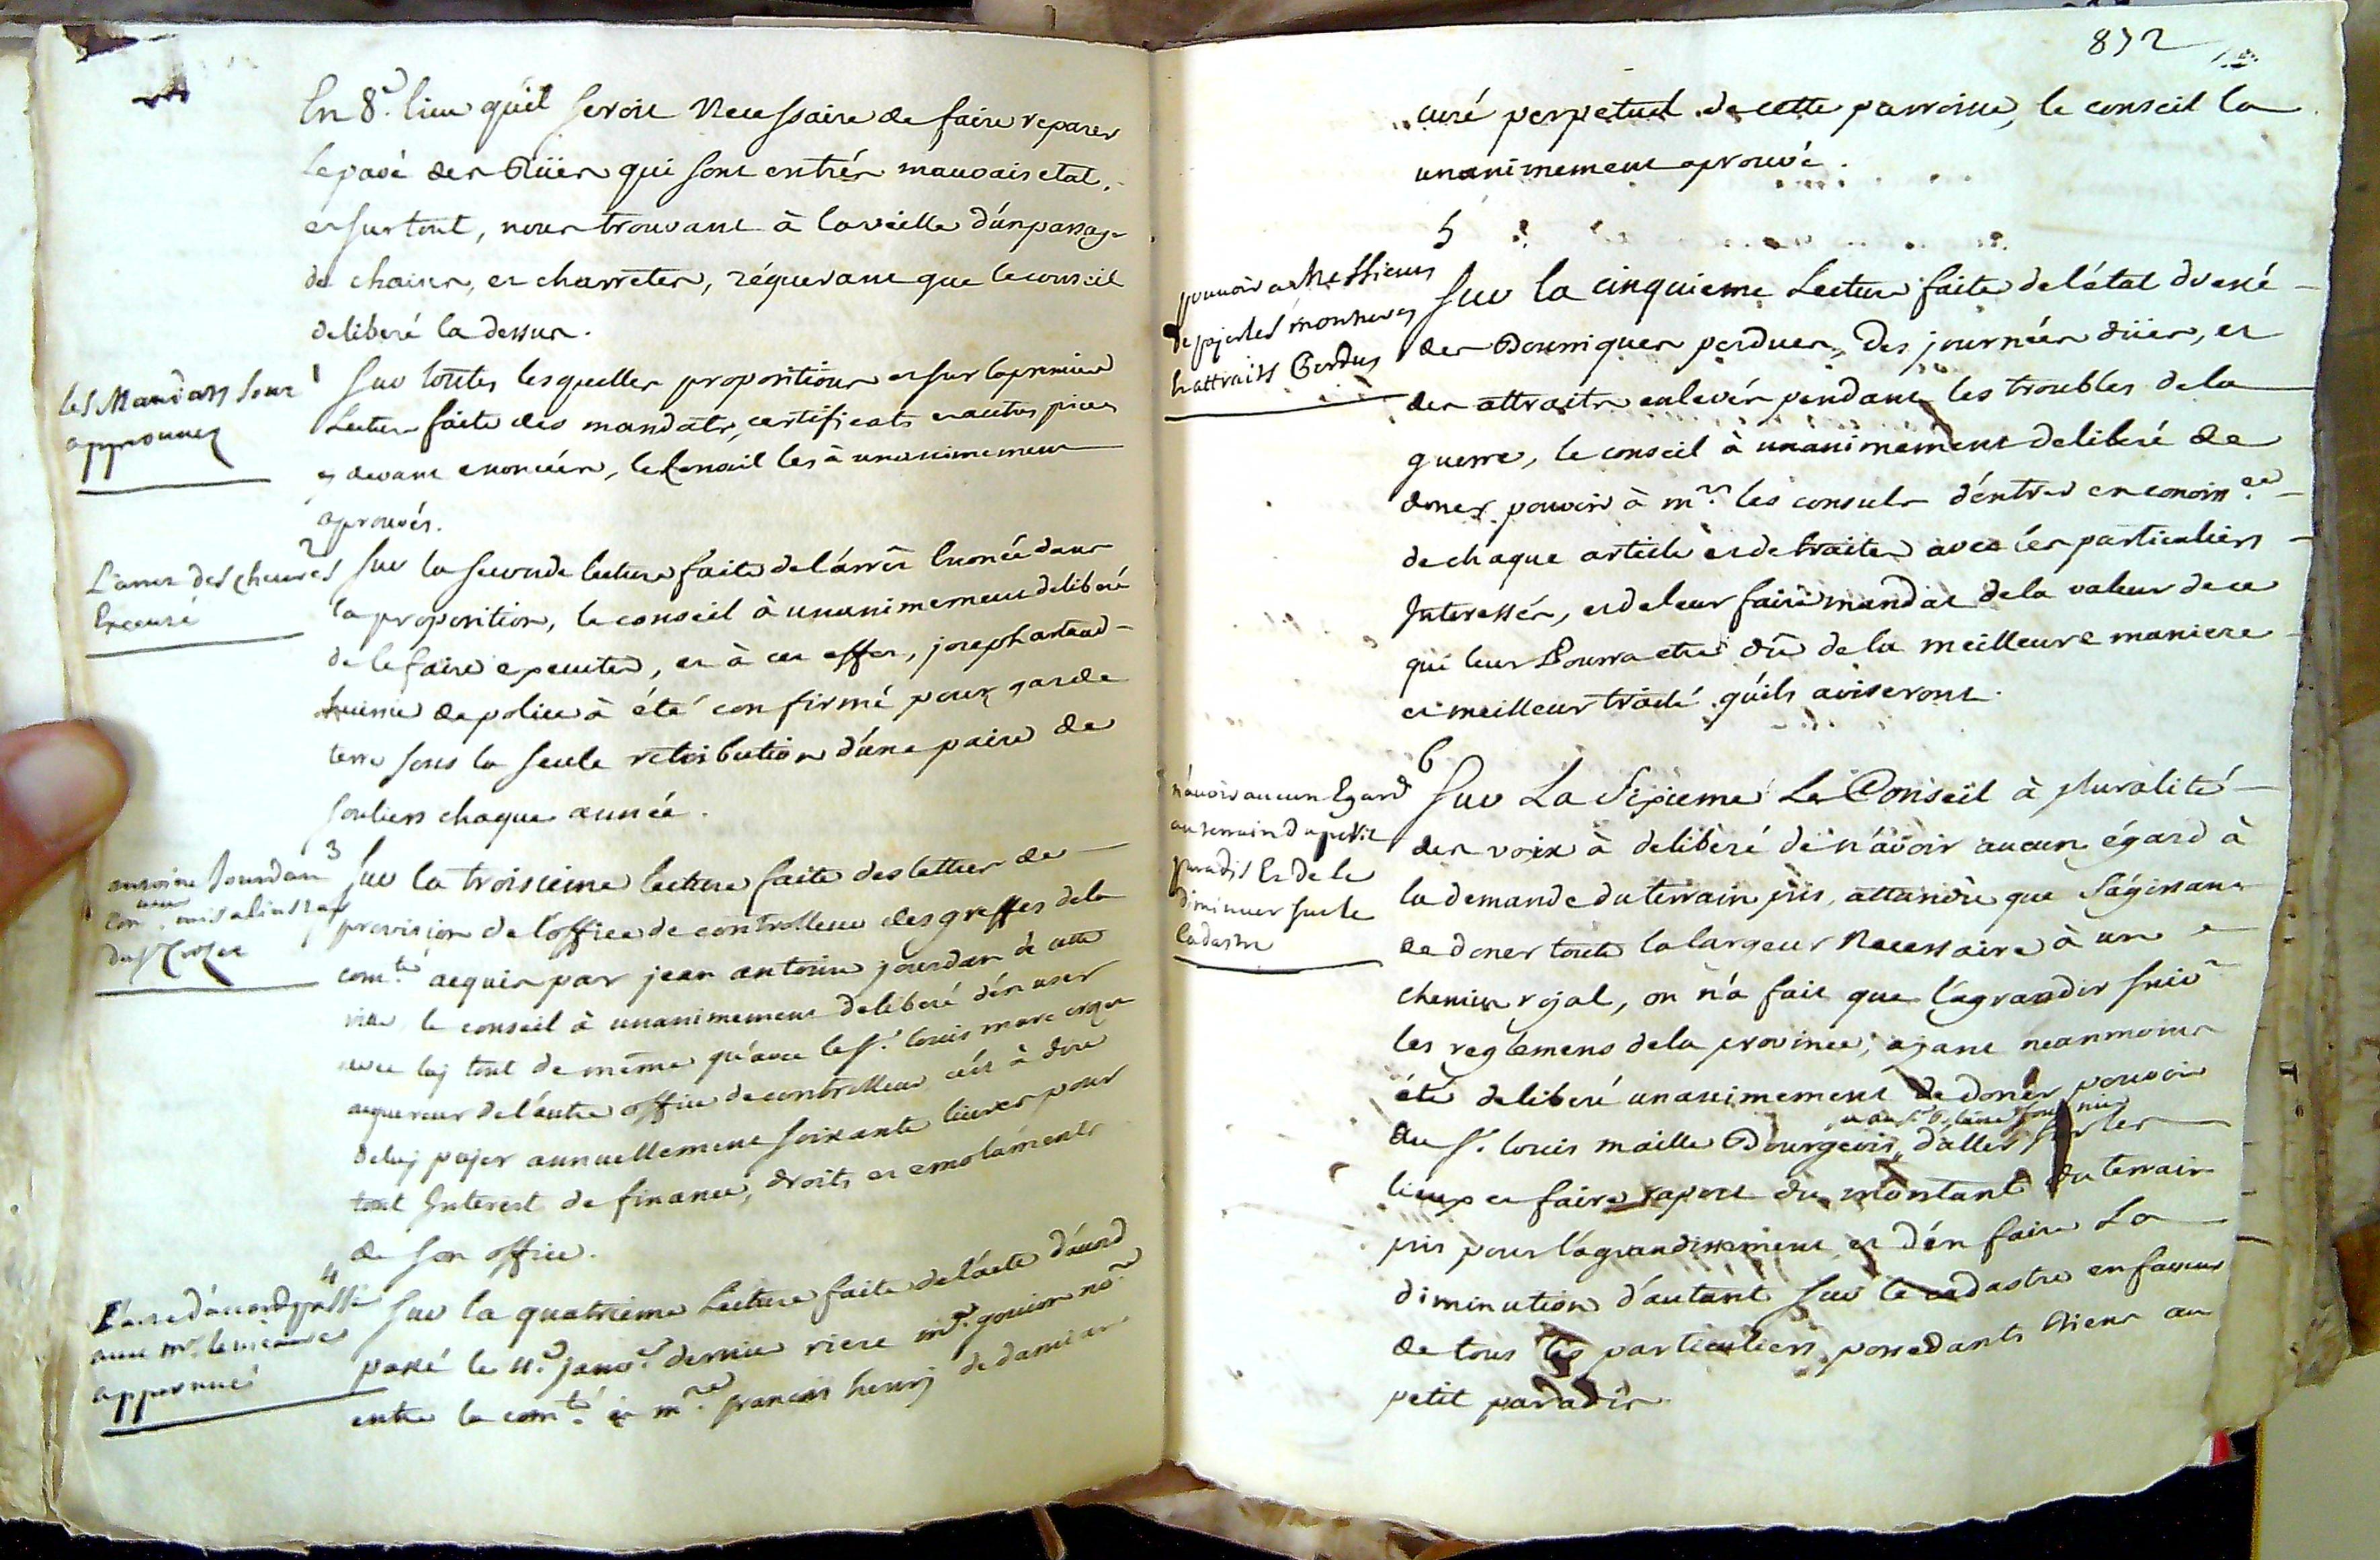 En 8.e lieu qu'il seroit necessaire de faire reparer
le pavé des Rües qui sont en très mauvais etat,
et surtout, nous trouvant à la veille d'un passage
de chaises, et charretes, réquerant que le conseil
deliberé la dessus.
les Mandats sont
approuvez
1
Sur toutes les quelles propositions et sur la premiere
Lecture faite des mandats, certificats et autres pieces
cy devant enoncées, le Conseil les à unanimement
aprouvés.
L'arret des cheures
Execuré
2
Sur la seconde lecture faite de l'arrêt Enoncé dans
la proposition, le conseil à unanimement deliberé
de le faire executer, et à cet effet, joseph artaud
huissier de police à été confirmé pour garde
terre sous la seule retribution d'une paire de
souliers chaque année.
antoine Jourdan
mis a l'instar
du Sr
3
Sur la troisieme lecture faite des lettres de
provision de l'office de controlleur des greffes de la
com.té acquis par jean antoine jourdan de cette
ville, le conseil à unanimement deliberé d'én user
avec luy tout de même qu'avec le Sr. louis marc
aquereur de l'autre office de controlleur, c'ést à dire
de luy payer annuellement soixante livres pour
tout Interest de finance, droits et emolaments
de son office.
L'acte d'accord passé
avec Mr. le vicaire
approuué
4
Sur la quatrieme Lecture faite de l'acte d'acord
passé le 11.e janv.r dernier riere m.e gouion no.re
entre la com.té et m.re francois henry de damian
872
curé perpetuel de cette parroisse, le conseil la
unanimement aprouvé.
5
pouuoir a Messieurs
de payer les
et attraits Perdus
Sur la cinquieme Lecture faite de l'état dressé
des Bourriques perdues, des journées d'iier, et
des attraits enlevés pendant les troubles de la
guerre, le conseil à unanimement deliberé de
doner pouvoir à m.rs les consuls d'éntrer en conoiss.ce
de chaque article et de traiter avec les particuliers
Interessés, et de leur faire mandat de la valeur de ce
qui leur Pourra etre dû de la meilleure maniere
et meilleur traité qu'ils aviseront.
6
n'auoir aucun Egard
au terrain du petit
paradis Et de le
diminuer sur le
Cadastre
Sur La Sixieme Le Conseil à pluralité
des voix à deliberé de n'ávoir aucun égard à
la demande du terrain pris, attandu que s'agissant
de doner toute la largeur Necessaire à un
chemin royal, on n'a fait que l'agrandir suiv.t
les reglemens de la province; ayant neanmoins
été deliberé unanimement de doner pouvoir
au Sr. louis maille Bourgeois, d'aller sur les
lieux et faire raport du montant du terrain
pris pour l'agrandissement et d'én faire La
diminution d'autant sur le cadastre en faveur
de tous les particuliers possedants biens au
petit paradis.